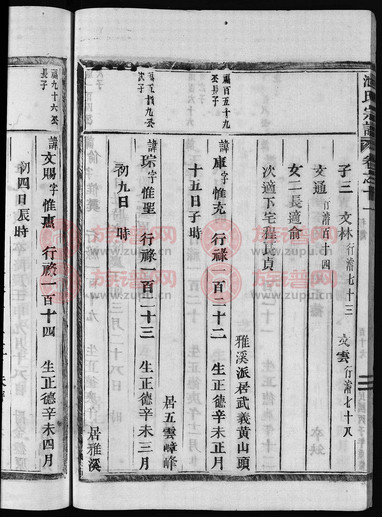 子三 文林行濳七十三 文雲行濳七十八
文通行濳百十四
女二長適俞
次適下宅程民貞
雅溪派居武義黃山頭
福百五十九公長子
諱庫字惟充 行祿一百二十二 生正德辛未正月
十五日子時
居五雲嶂峰
諱琮字惟聖 行祿一百二十三 生正德辛未三月
初九日 時
居雅溪
福九十六公長子
諱文賜字惟惠 行祿一百十四 生正德辛未四月
初四日辰時
族谱网
www.zupu.cn